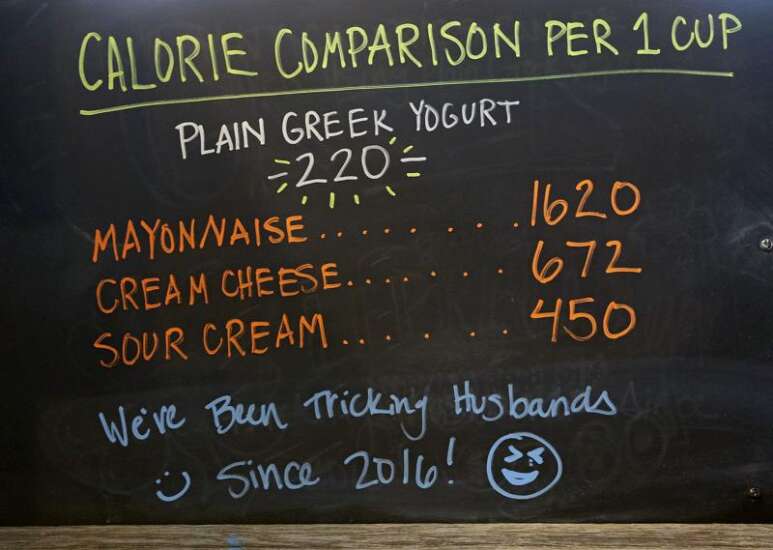 CALORIE COMPARISON PER 1 CUP
PLAIN GREEK YOGURT
220
MAYONNAISE.........1620
CREAM CHEESE.......672
SOUR CREAM......450
We've Been Tricking Husbands
Since 2016!